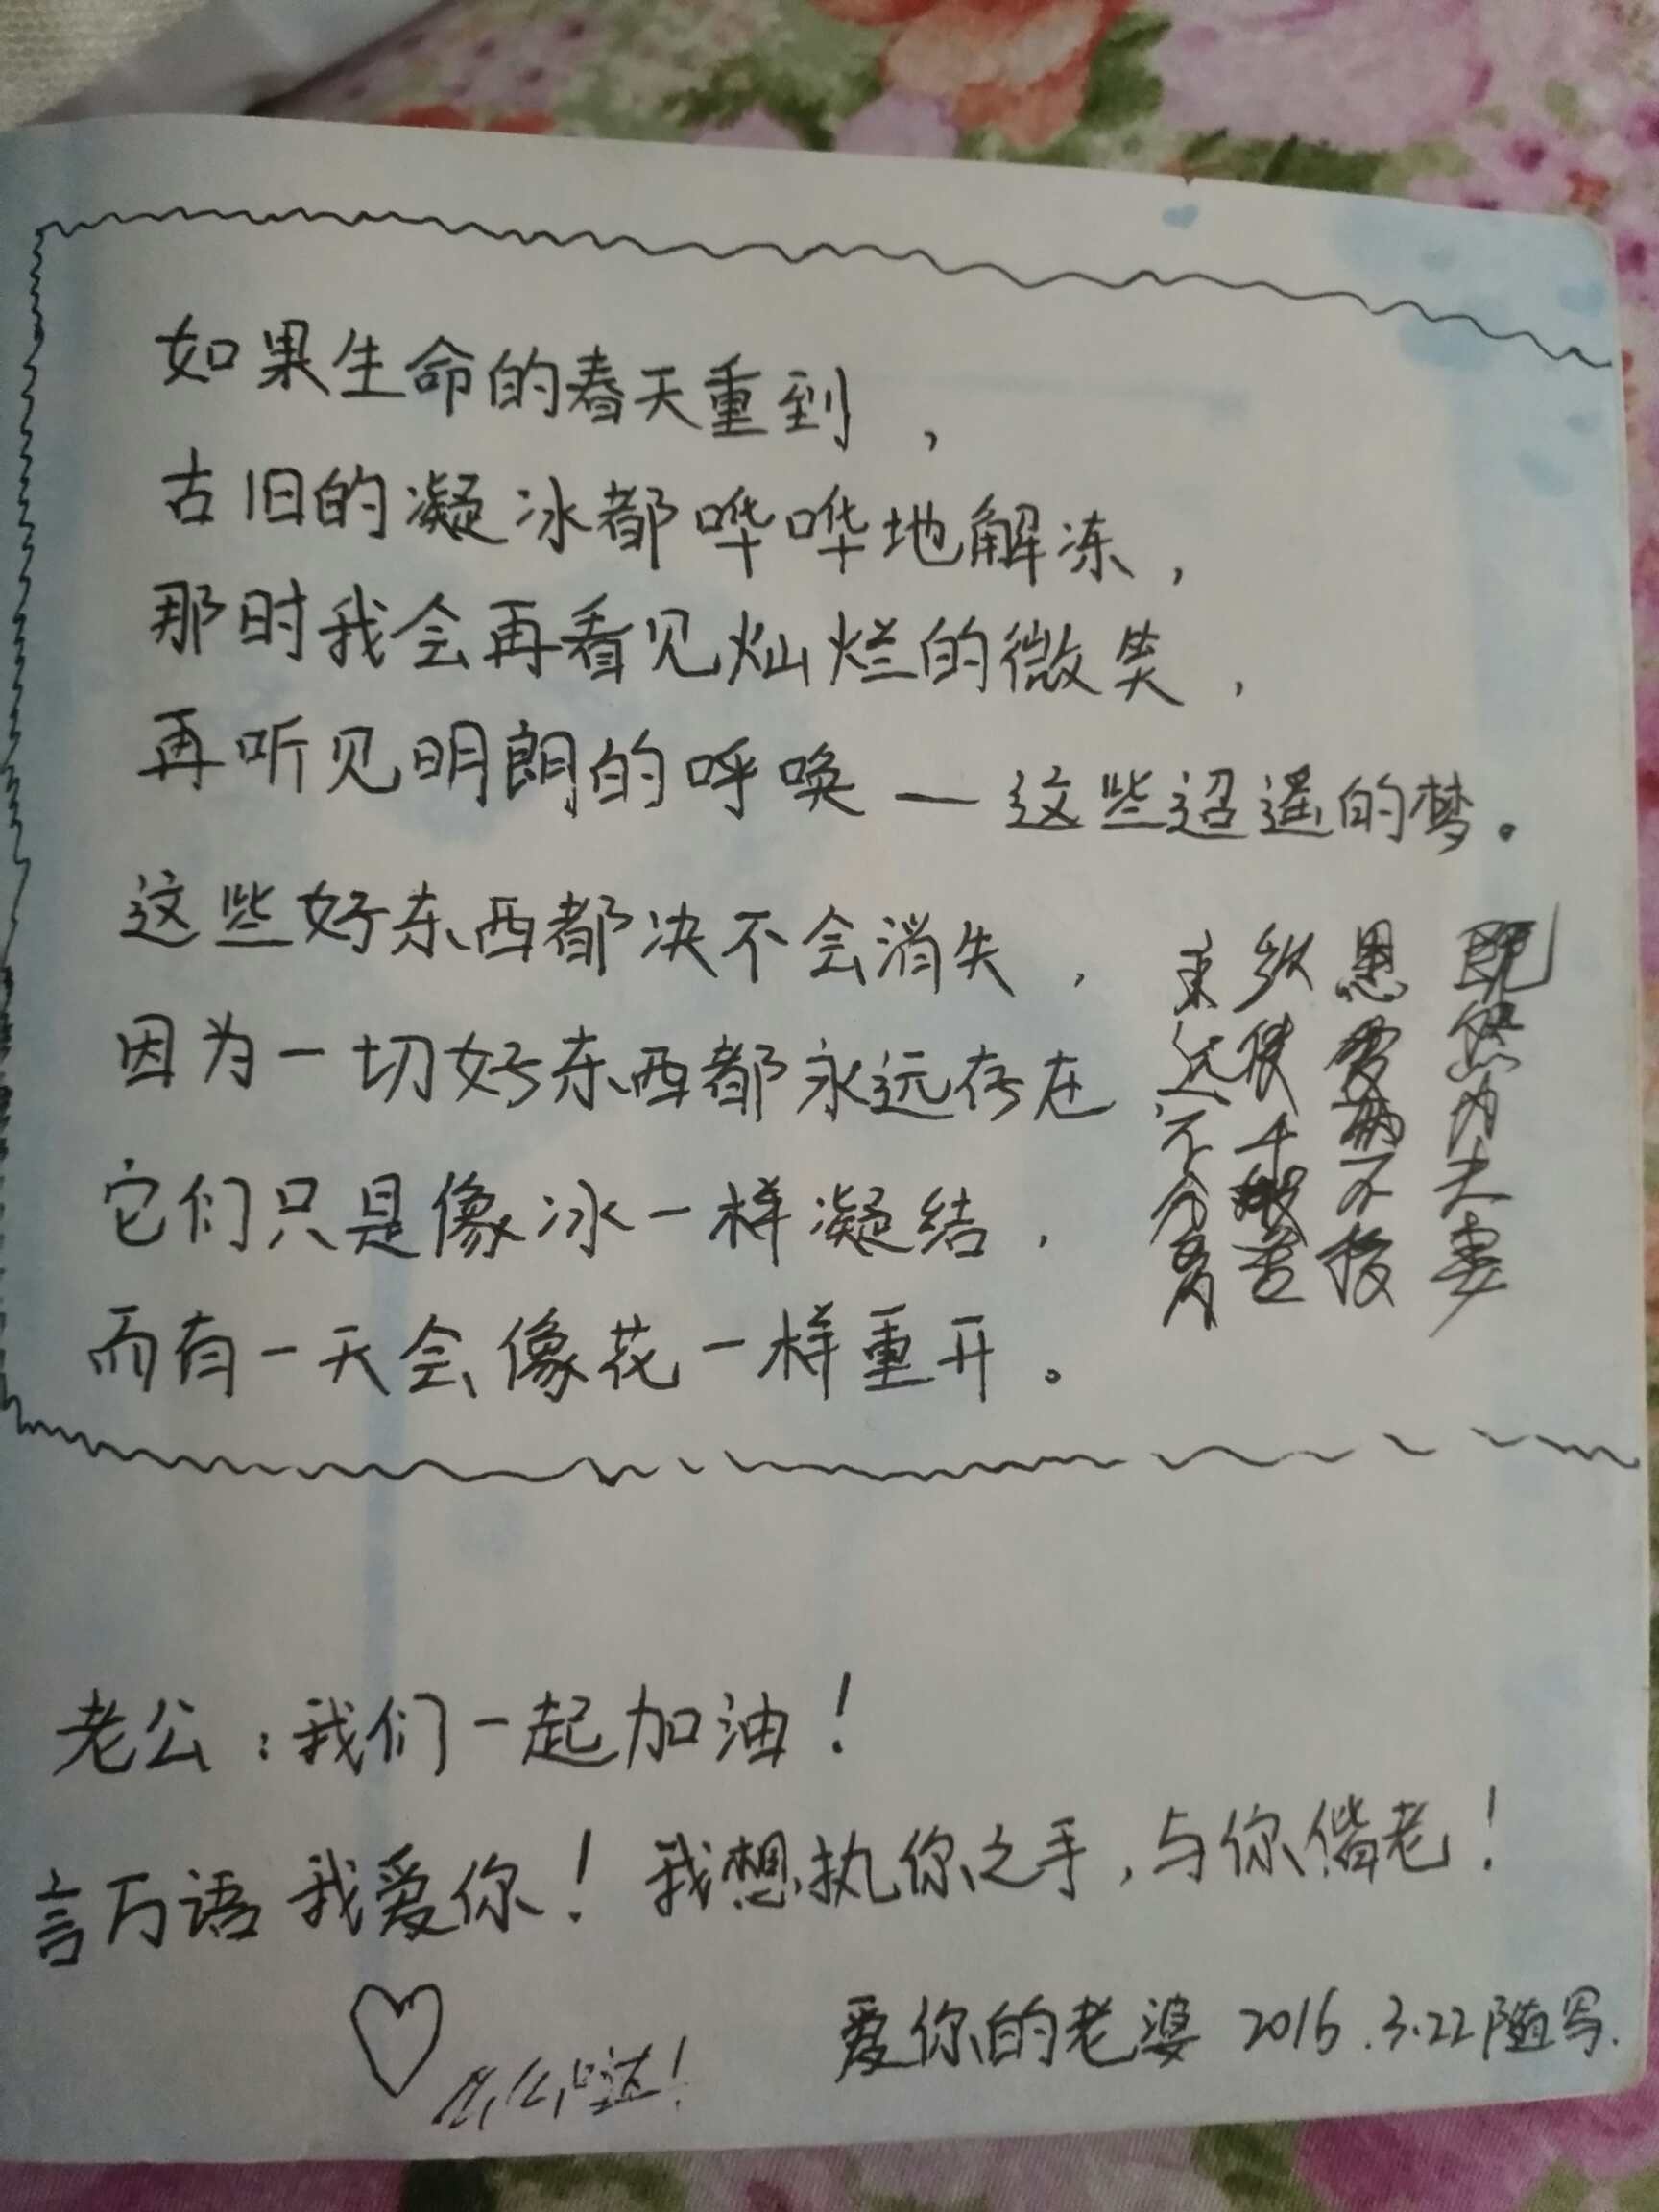 如果生命的春天重到，
古旧的凝冰都哗哗地解冻，
那时我会再看见灿烂的微笑，
再听见明朗的呼唤—这些迢遥的梦。
这些好东西都决不会消失，
因为一切好东西都永远存在
它们只是像冰一样凝结，
而有一天会像花一样重开。
既然为夫妻
恩爱两不
纵使千般苦
永远不分离
老公：我们一起加油！
言万语 我爱你！我想执你之手，与你偕老！
么么哒！
爱你的老婆 2016.3.22随写.